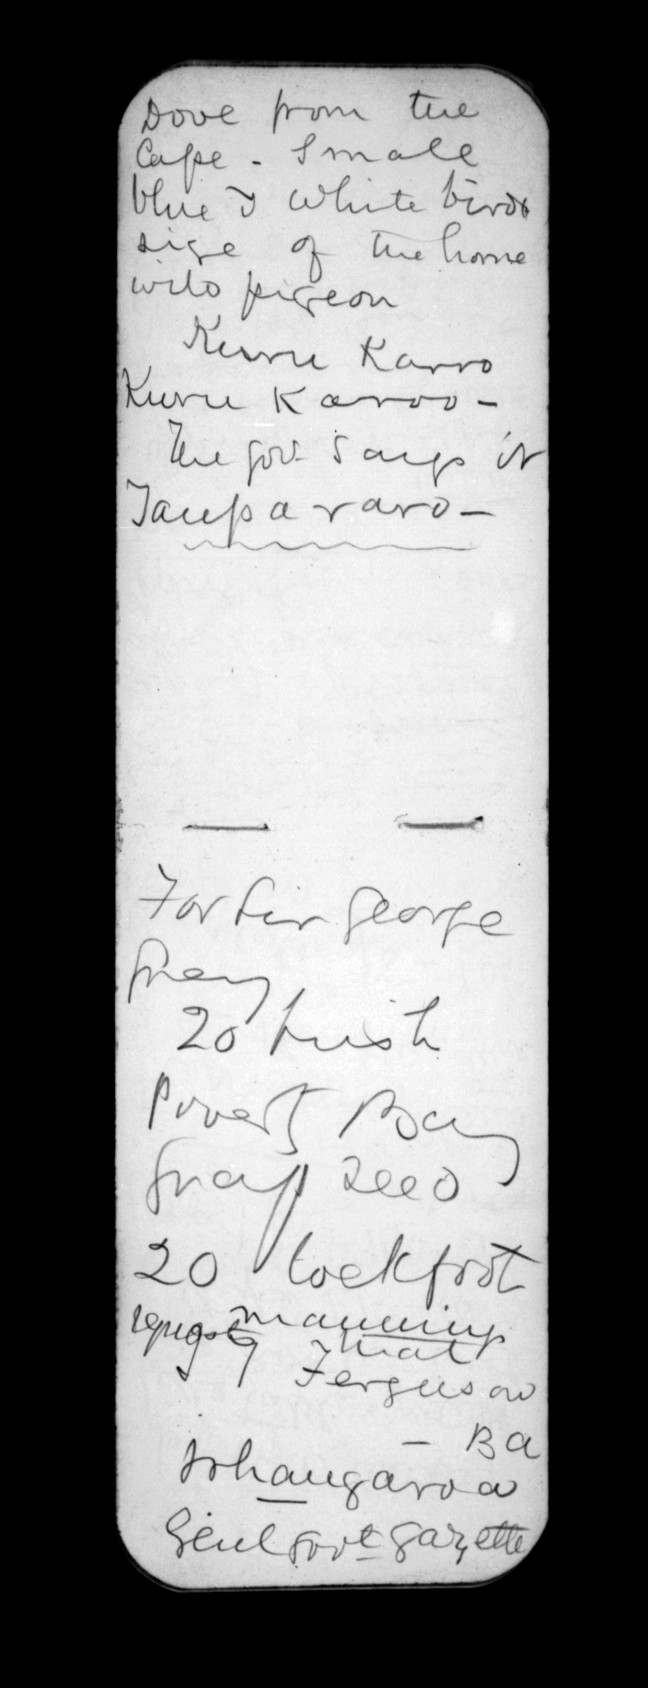 Dove from the
Cape - Small
blue & white birds
size of the home
wild pigeon
Kuru Karro
Kuru Karoo -
The Gov. Says it
Taupararo -
For Sir George
Grey
20 bush
Poverty Bay
Grass seed
20 Cocksfoot
Manning
that
Ferguson
- Ba
Whangaroa
Genl Govt Gazette